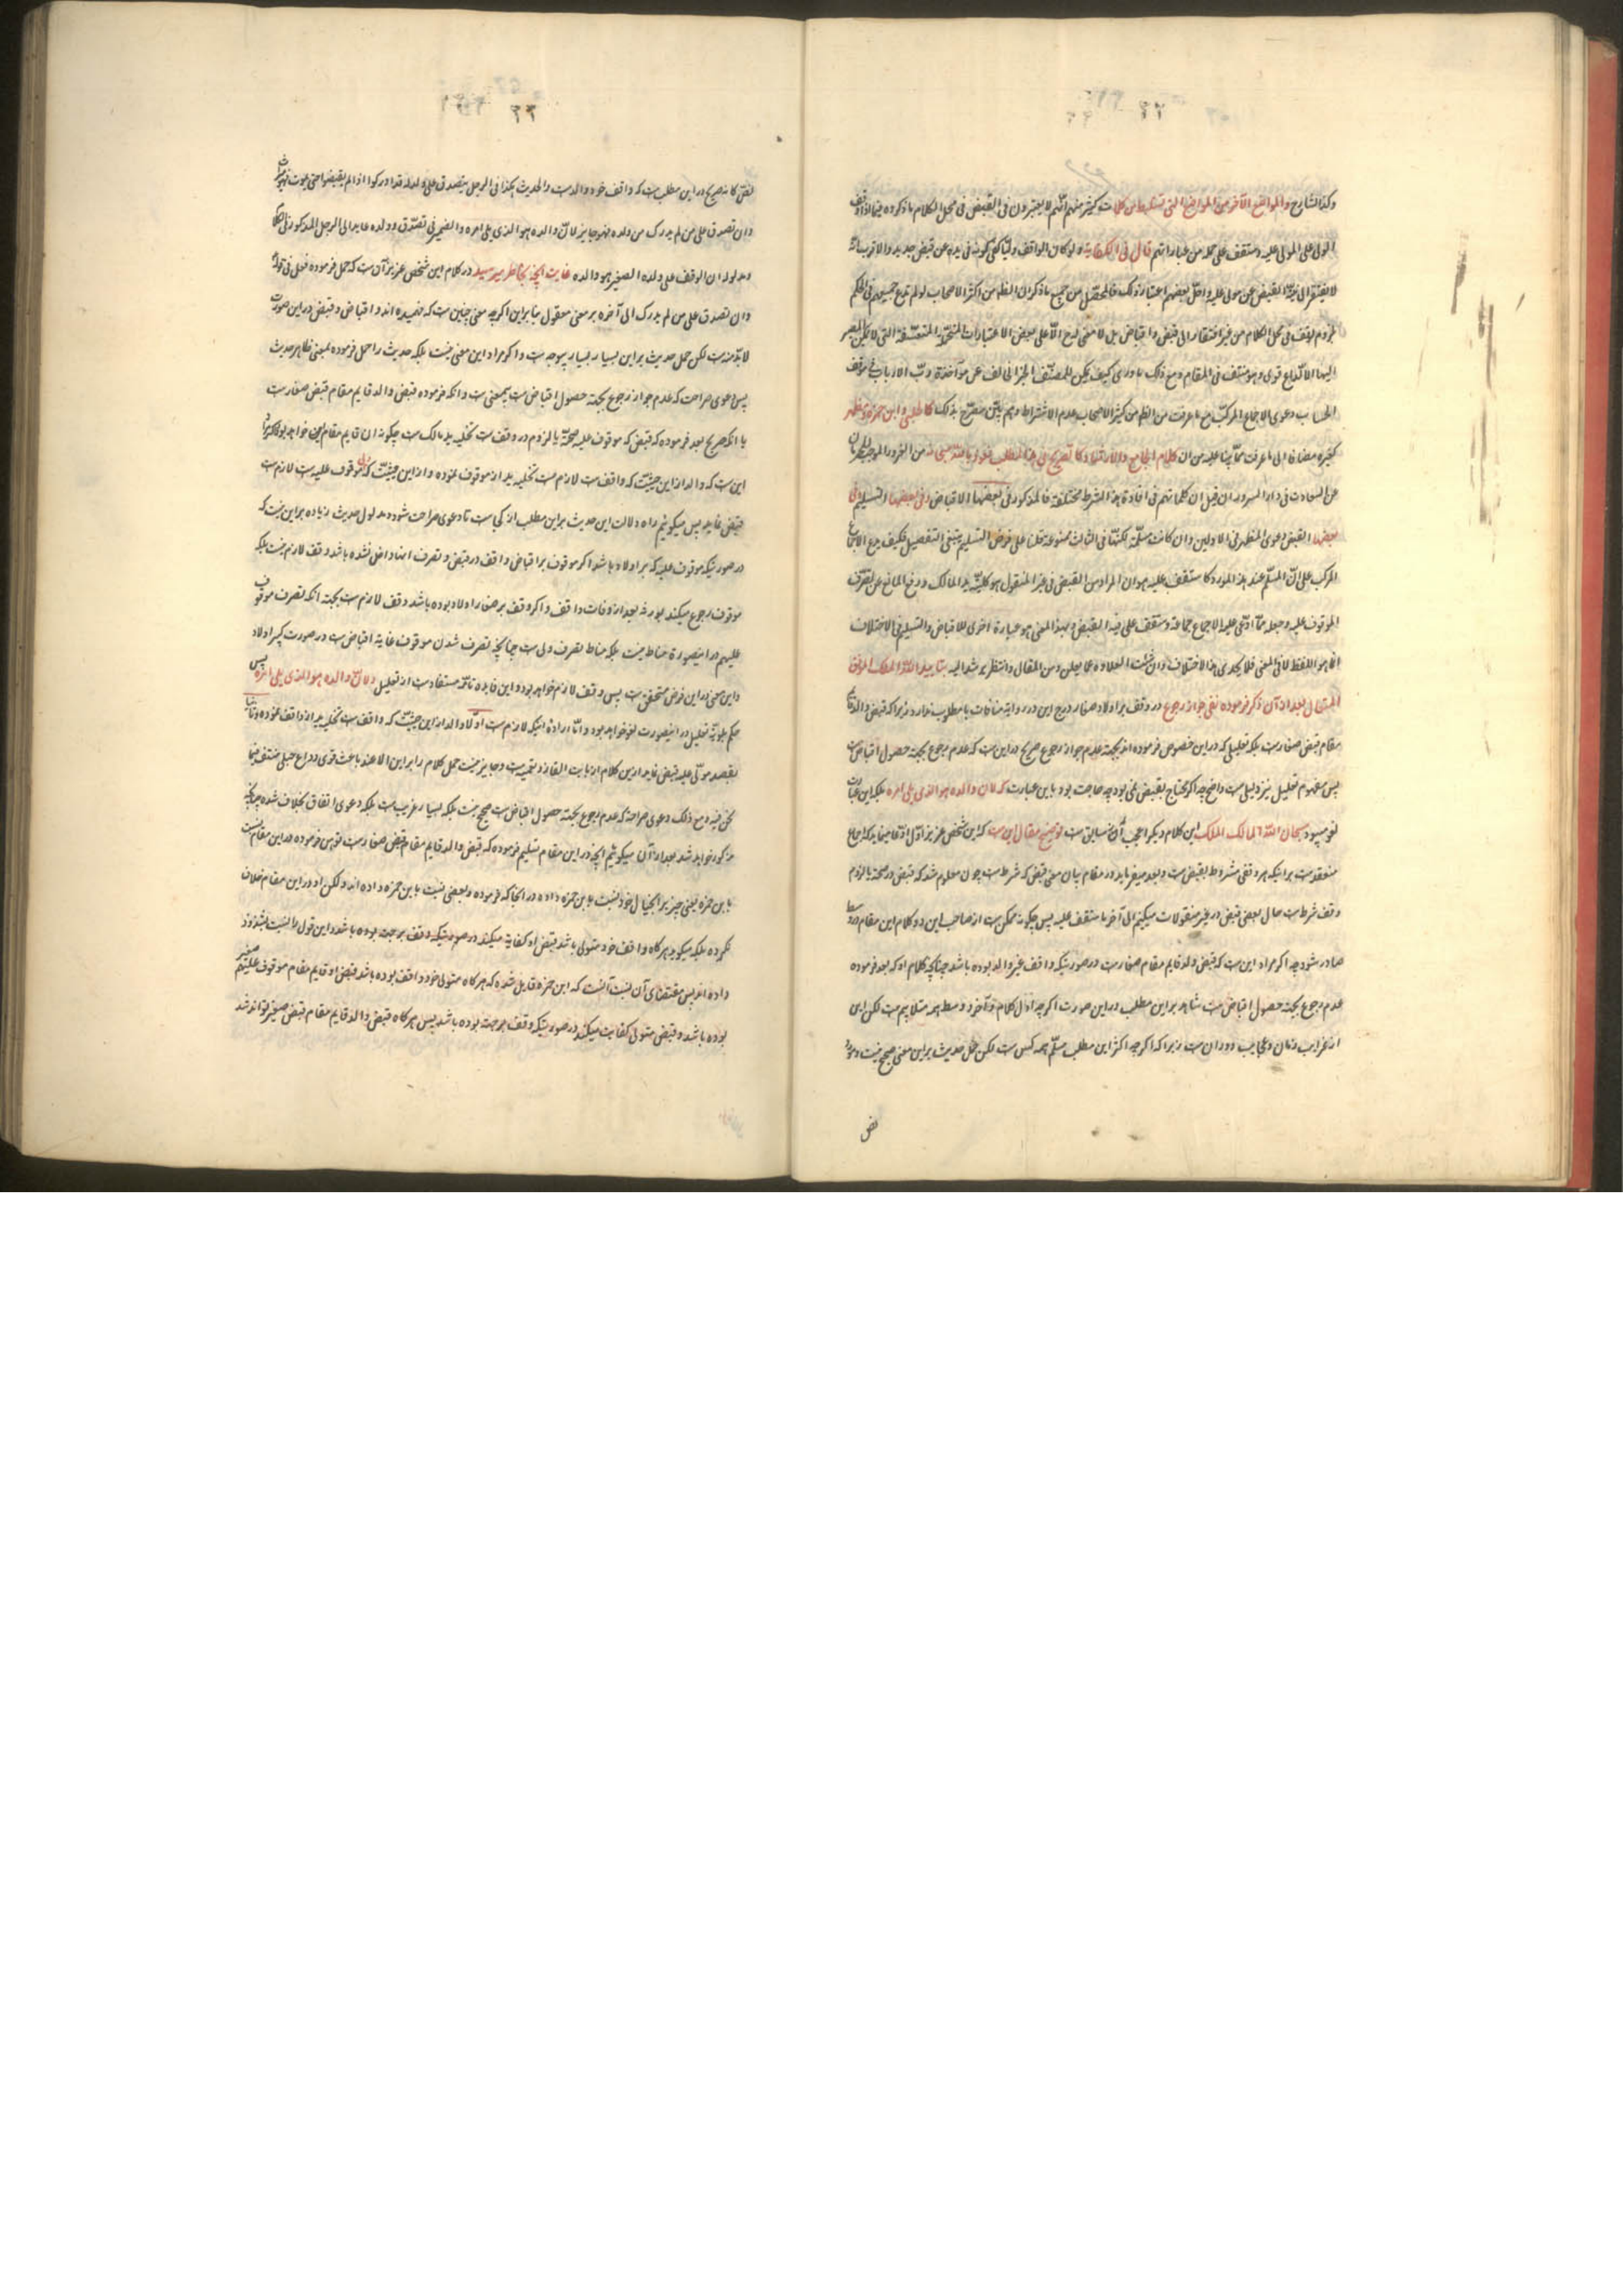 ۳۲
وكذا الشارح والمواضع الآخر من المواضع التی تستنبط من كلمات كثیر منهم انّهم لا یعتبرون فی القبض فی محل الكلام ما ذكروه فیما اذا وقف
المولی علی المولی علیه وستقف علی جملة من عباراتهم قال فی الكفایة ولو كان الواقف ولیّا كفی كونه فی یده عن قبض جدید والاقرب انّه
لا یفتقر الی نیّة القبض عن مولی علیه واخلّ بعضهم اعتبار ذلك فالمحصّل من جمیع ما ذكر ان الظاهر من اكثر الاصحاب لو لم ندع جمیعهم فی الحكم
بلزوم الوقف فی محل الكلام من غیر افتقار الی قبض واقباض بل لا معنی لهما الّا علی بعض الاعتبارات المتعسّفة التی لا یمكن المصیر
الیها الا لداع قوی وهو منتف فی المقام ومع ذلك ما ادری كیف یمكن للمصنّف الجزاف عن مؤاخذة ربّ الارباب فی موقف
الحساب دعوی الاجماع المركب مع ما عرفت من الظهور من كثیر الاصحاب عدم الاشتراط وهم بین مصرّح بذلك كالحلبی وابن حمزه ومظهر
كغیره مضافا الی ما عرفت ممّا بیّنا علیه من ان كلام الجامع والارشاد كالصریح فی هذا المطلب نعوذ بالله سبحانه من الغرور الموجب
عن السعادت فی دار السرور ان قیل ان كلماتهم فی افادة هذا الشرط مختلفة فالمذكور فی بعضها الاقباض وفی بعضها التسلیم وفی
بعضها القبض ودعوی الظهور فی الاولین وان كانت مسلّمة لكنّها فی الثالث ممنوعة قلنا علی فرض التسلیم ینبغی التفصیل فكیف یدع الاجماع
المركب علی انّ المسلّم عند هذا المورد كما ستقف علیه هو ان المراد من القبض فی غیر المنقول هو تخلیة ید المالك ورفع المانع عن تصرّف
الموقوف علیه وجعله ممّا ادّعی علیه الاجماع جماعة وستقف علی فیه القبض بهذا المعنی هو عبارة اخری للاقباض والتسلیم فی الاختلاف
انما هو اللفظ لا فی المعنی فلا یجدی هذا الاختلاف وان شئت العلاوه مما یعلن ومن المقال وانتظر یرشد الیه بتأیید الله الملك الموفّق
المتعال بعد از آن ذكر فرموده نفی جواز رجوع در وقف بر اولاد صغار درج این در روایة منافات با مطلوب ندارد زیرا كه قبض والد قایم
مقام قبض صغارست بلكه تعلیلی كه در این خصوص فرموده اند بجهة عدم جواز رجوع صریح در این ست كه عدم رجوع بجهة حصول اقباض ست
پس مفهوم تعلیل نیز دلیلی ست واضح چه اگر محتاج بقبض نمی بود چه حاجت بود باین عبارت كه لان والده هو الذی یلی امره بلكه این عبارت
لغو میبود سبحان الله المالك الملك این كلام دیگر اعجب از سابق ست توضیح مقال این ست كه این شخص عزیز اوّل ادّعا میفرماید كه اجماع
منعقدست بر اینكه هر وقفی مشروط بقبض ست و بعد میفرماید در مقام بیان معنی قبض كه شرط ست چون معلوم شد كه قبض در صحّة یا لزوم
وقف شرط ست حال بمعنی قبض در غیر منقولات میگوییم الی آخر ما ستقف علیه پس چگونه ممكن ست از صاحب این دو كلام این مقام در وسط
صادر شود چه اگر مراد این ست كه قبض والد قایم مقام صغارست در صورتیكه واقف غیر والد بوده باشد چنانكه كلام او كه بعد فرموده
عدم رجوع بجهة حصول اقباض ست شاهد بر این مطلب در این صورت اگرچه اوّل كلام و آخر و وسط همه متلایم ست لكن این
از غرایب زمان و عجایب دوران ست زیرا كه اگرچه اكثر این مطلب مسلّم همه كس ست لكن حمل حدیث بر این معنی صحیح نیست وجود
نصّ
۳۳
نصّ كانه صریح در این مطلب ست كه واقف خود والد ست والحدیث هكذا فی الرجل یتصدق علی ولده قد ادركوا اذا لم یقبضوا حتی یموت فهو میراث
وان تصدق علی من لم یدرك من ولده فهو جایز لانّ والده هو الذی یلی امره والضمیر فی تصدّق وولده عاید الی الرجل المذكور فی الكلام
ومدلوله ان الوقف علی ولده الصغیر هو والده غایت آنچه بخاطر میرسد در كلام این شخص عزیز آن ست كه حمل فرموده فعلی فی قوله
وان تصدق علی من لم یدرك الی آخره بر معنی معقول بنابراین اگرچه معنی چنین ست كه فهمیده اند و اقباض و قبض در این صورت
لابدّ منه ست لكن حمل حدیث بر این بسیار بسیار بیوجه ست و اگر مراد این معنی نیست بلكه حدیث را حمل فرموده بمعنی ظاهر حدیث
پس دعوی صراحت كه عدم جواز رجوع بجهة حصول اقباض ست بیمعنی ست و آنكه فرموده قبض والد قایم مقام قبض صغارست
با آنكه صریح بعد فرموده كه قبض كه موقوف علیه صحّة یا لزوم در وقف ست تخلیه ید مالك ست چگونه آن قایم مقام این خواهد بود اگر مراد
این ست كه والد از این حیثیّت كه واقف ست لازم ست تخلیه ید از موقوف نموده و از این حیثیّت كه ولیّ موقوف علیه ست لازم ست
قبض نماید پس میگوییم راه دلالت این حدیث بر این مطلب از كجاست تا دعوی صراحت شود و مدلول حدیث زیاده بر این نیست كه
در صورتیكه موقوف علیه كه بر اولاد باشد اگر موقوف بر اقباض واقف در قبض و تصرف آنها داخل نشده باشد وقف لازم نیست بلكه
موقوف رجوع میكند بورثه بعد از وفات واقف و اگر وقف بر صغار اولاد بوده باشد وقف لازم ست بجهة آنكه تصرف موقوف
علیهم در اینصورة مناط نیست بلكه مناط تصرف ولی ست چنانچه تصرف شدن موقوف غایة اقباض ست در صورت كبیر اولاد
و این معنی در این فرض متحقق ست پس وقف لازم خواهد بود و این فایده تامّه مستفادست از تعلیل لانّ والده هو الذی یلی امره پس
حكم بلغویّة تعلیل در اینصورت لغو خواهد بود و امّا ارادهٔ اینكه لازم ست اوّلا والد از این حیثیّت كه واقف ست تخلیه ید از واقف نموده و ثانیا
بقصد مولّی علیه قبض نماید از این كلام از بابت الغاز و تعمیه ست و جایز نیست حمل كلام را بر این الا عند باعث قوی و داع جبلی منتف فیما
نحن فیه و مع ذلك دعوی صراحة كه عدم رجوع بجهة حصول اقباض ست صحیح نیست بلكه بسیار غریب ست بلكه دعوی اتفاق بخلاف شده چنانكه
مذكور خواهد شد بعد از آن میگوییم آنچه در این مقام تسلیم فرموده كه قبض والد قایم مقام قبض صغارست نفرموده در این مقام نسبت
بابن حمزه یعنی چیز بر آنچیال خود نسبت بابن حمزه داده در آنجا كه فرموده و بعضی نسبت باین حمزه داده اند ولكن او در این مقام خلاف
نكرده بلكه میگوید هر گاه واقف خود متولی باشد قبض او كفایة میكند در صورتیكه وقف بر جهت بوده باشد و این قول را نسبت بشذوذ
داده اند پس مقتضای آن نسبت آنست كه ابن حمزه قایل شده كه هر گاه متولی خود واقف بوده باشد قبض او قایم مقام موقوف علیهم صغیر
بوده باشد و قبض متولی كفایت میكند در صورتیكه وقف بر جهت بوده باشد پس هر گاه قبض والد قایم مقام قبض صغیر تواند شد